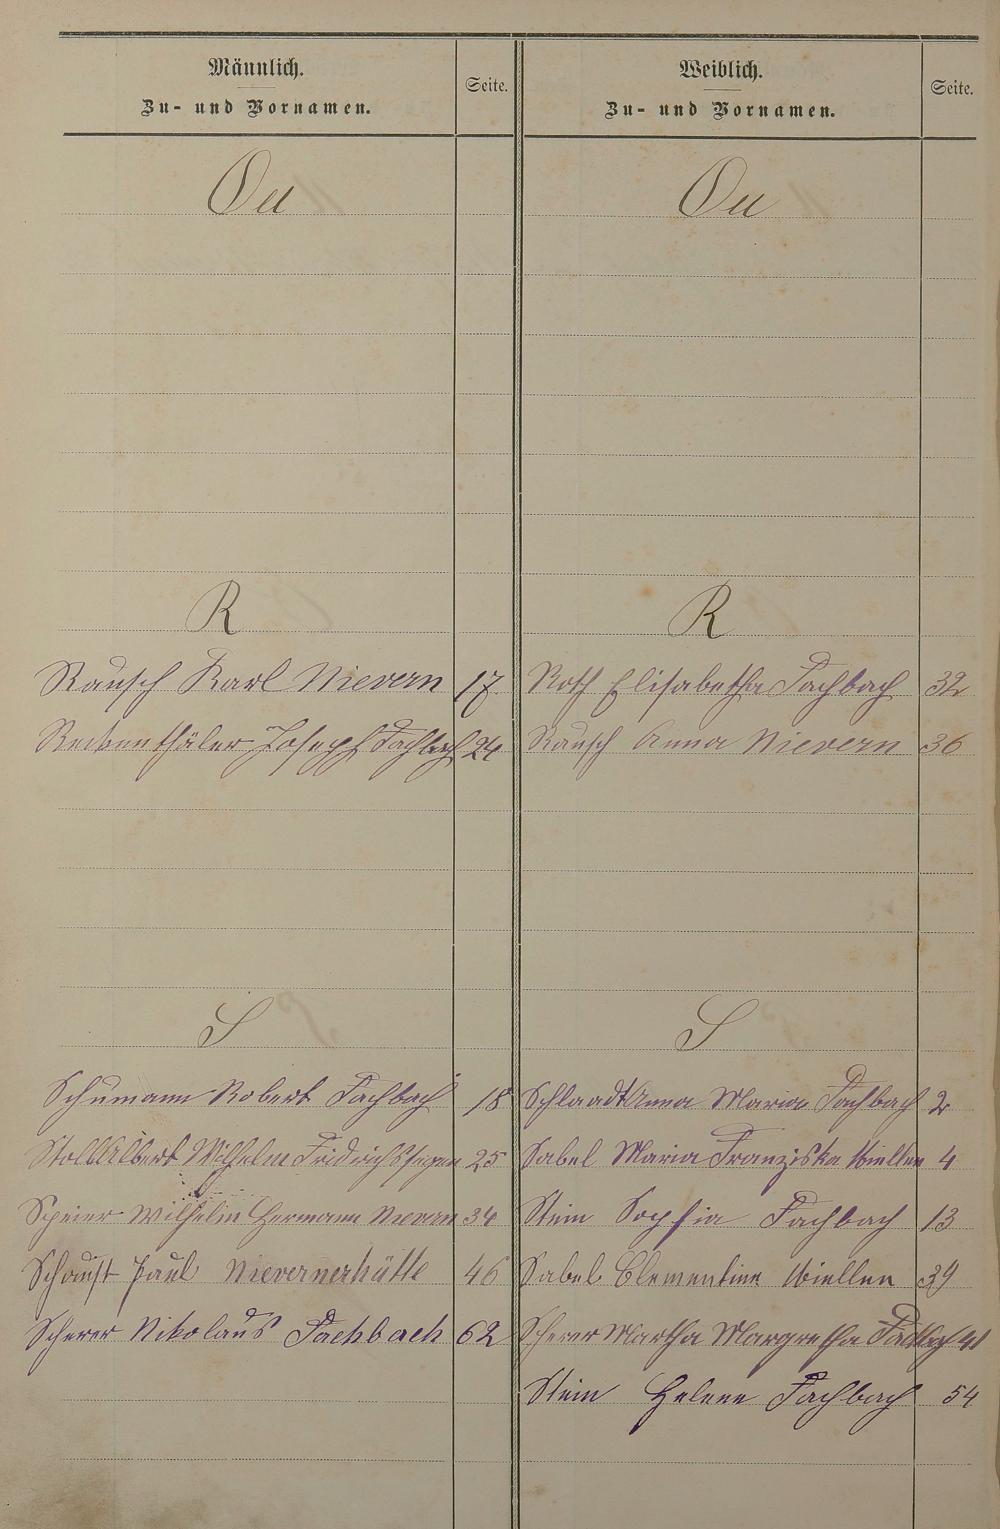 Männlich.
Zu- und Vornamen.
Seite.
Weiblich.
Zu- und Vornamen.
Seite.
Qu
Qu
R
R
Rausch Karl Nievern 17
Roth Elisabetha Fachbach 32
Reckenthäler Joseph Fachbach 24
Rausch Anna Nievern 36
S
S
Schumann Robert Fachbach 18
Schlaadt Anna Maria Fachbach 2
Stoll Albert Wilhelm Fridrichssegen 25
Sabel Maria Franziska Miellen 4
Speier Wilhelm Hermann Nievern 34
Stein Sophia Fachbach 13
Schaust Paul Nievernerhütte 46
Sabel Clementine Miellen 39
Scherer Nikolaus Fachbach 62
Scherer Martha Margretha Fachbach 41
Stein Helene Fachbach 54